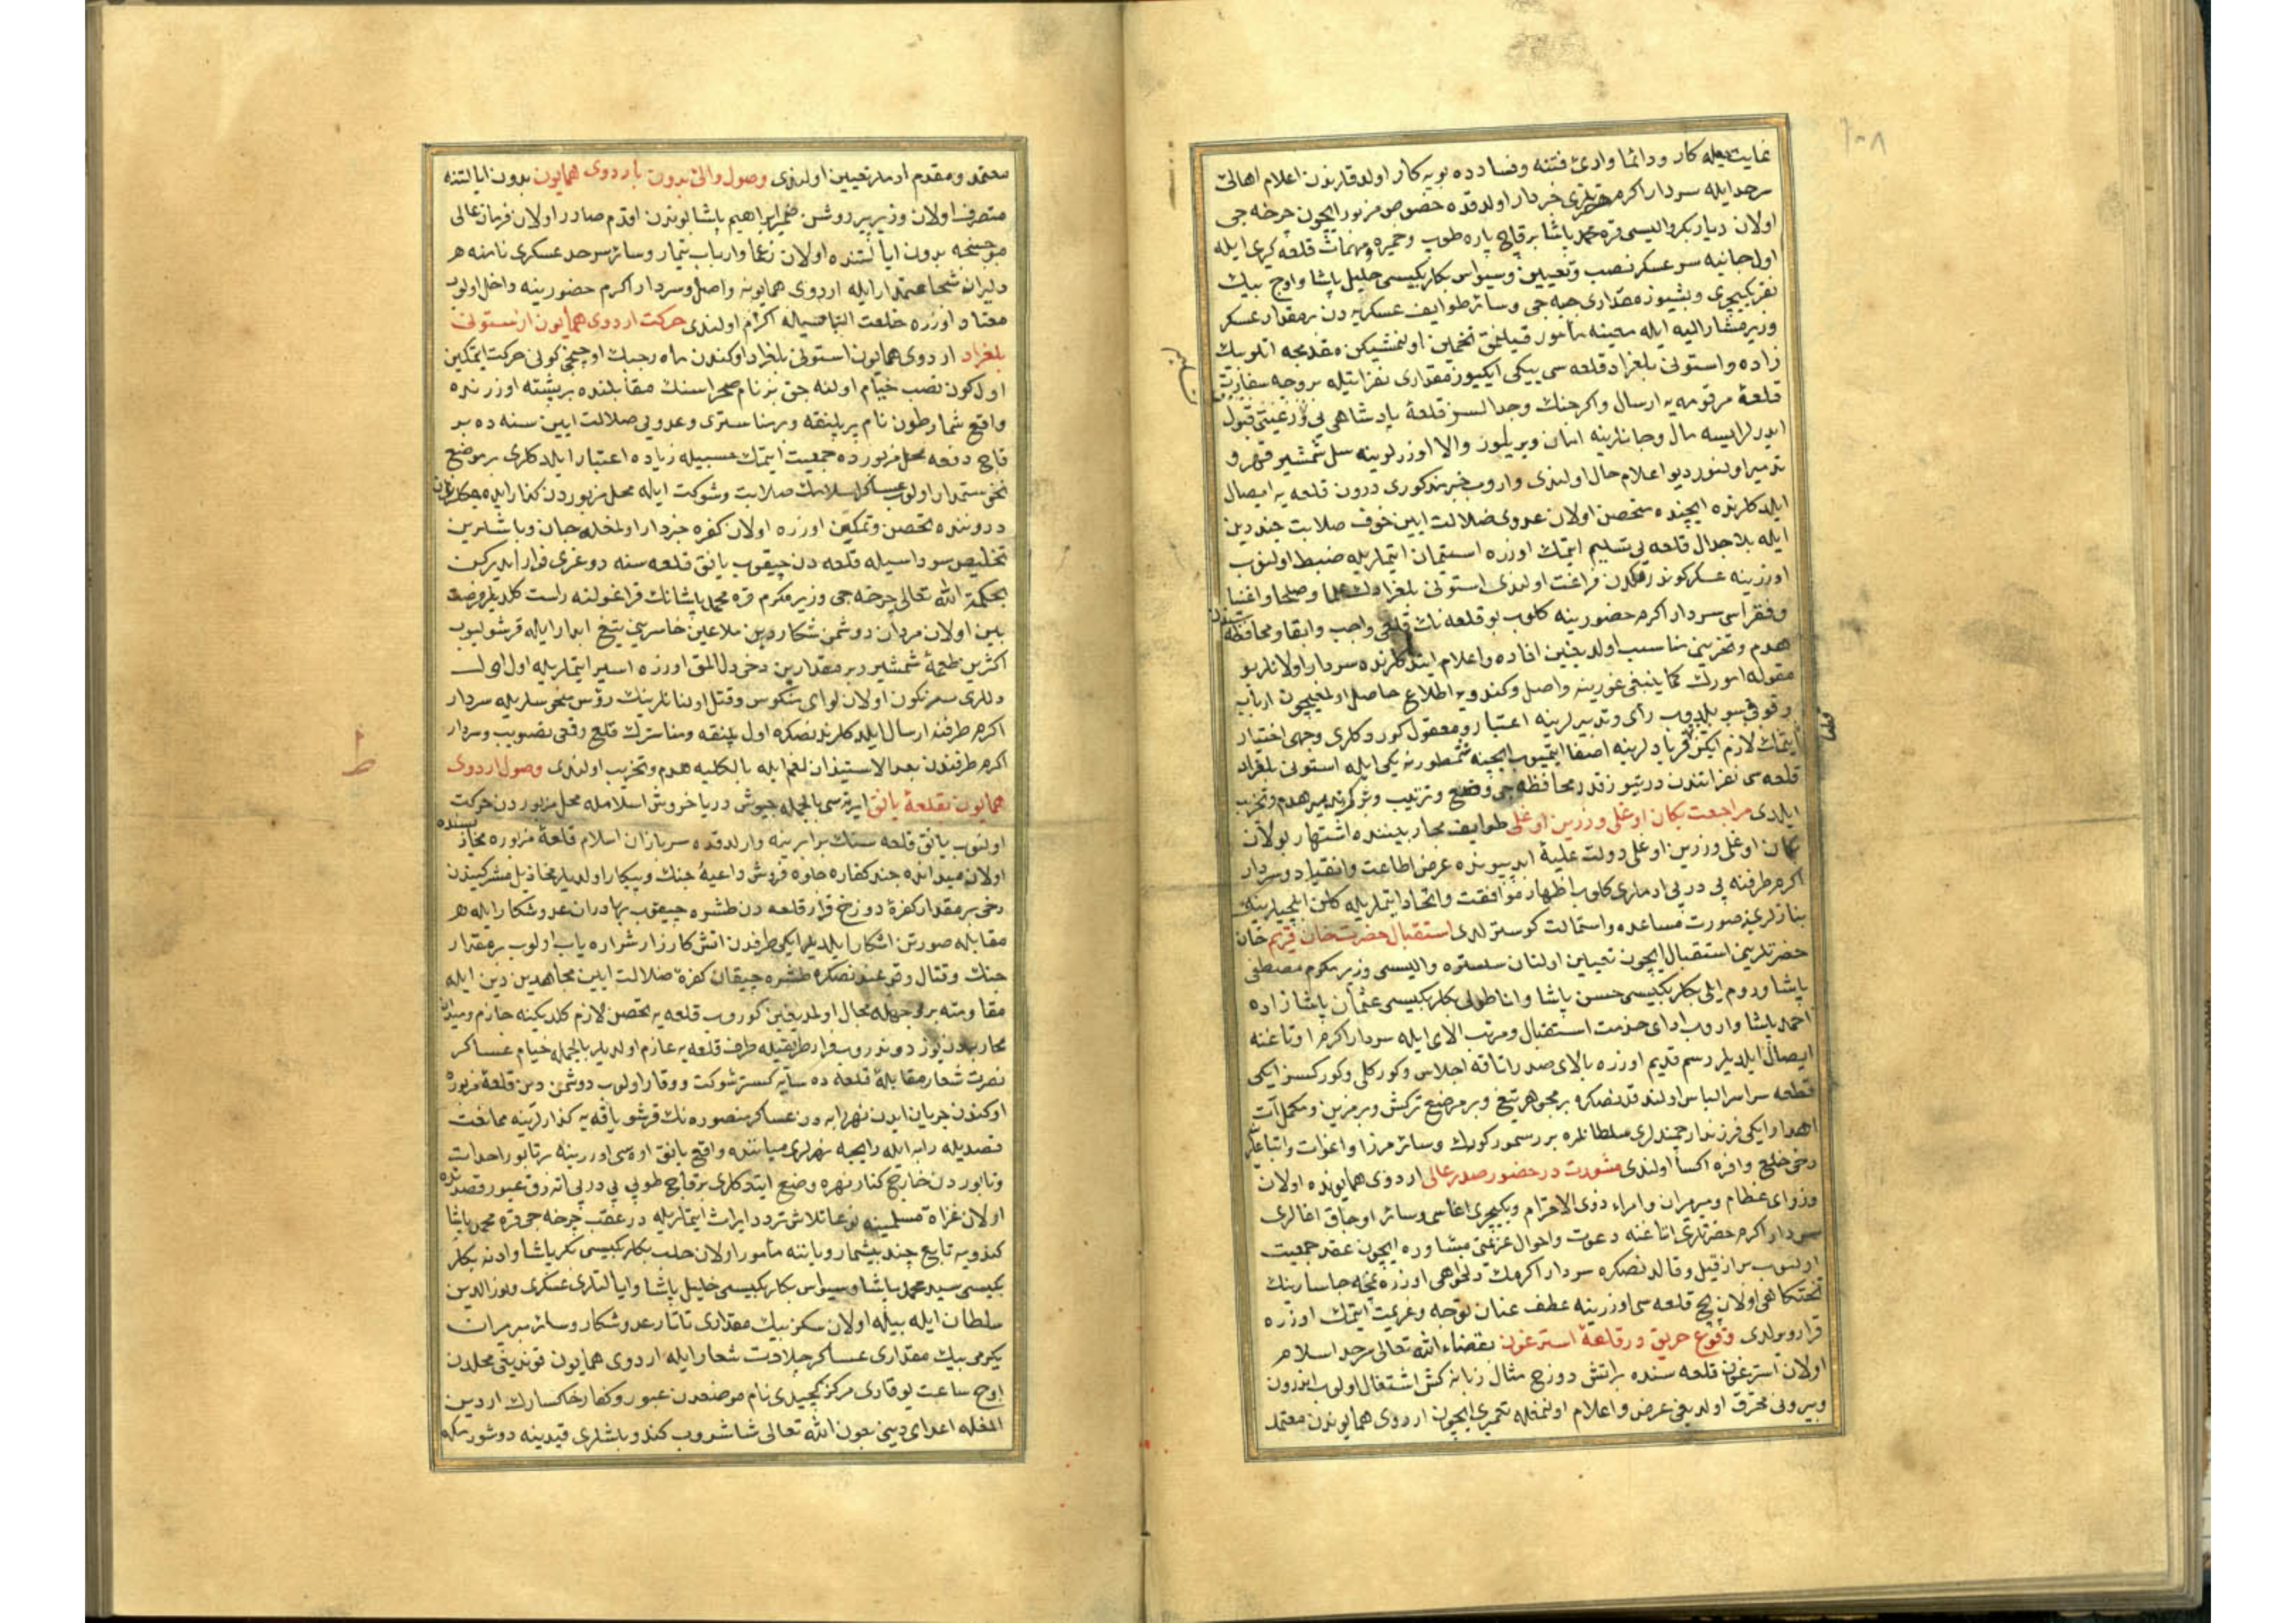 اولان دیاربکر والیسی قره محمد پاشا برقاچ پاره طوپ وخمپره ومهمات قلعه کیری ایله
اول جانبه سرعسکر نصب وتعیین وسیواس بکلربکیسی خلیل پاشا واوچ بیك
نفر یکیچری وبشیوز مقداری جبه جی وسائر طوایف عسکریه دن برمقدار عسکر
وزیر مشارالیه ایله معینه مأمور قیلنمق
زاده واستونی بلغراد قلعه سی بیکی ایکیوز مقداری نفراتیله بروجه سفارت
قلعۀ مرقومه یه ارسال واکر جنك وجدالسز قلعۀ پادشاهی یی ویررغبتی قبول
ایدرلرایسه مال وجانلرینه امان ویریلور والا اوزرلرینه سل شمشیر قهر و
تدمیر اولنور دیو اعلام حال اولندی واروب خبر مذکوری درون قلعه یه ایصال
ایلدکلرنده ایچنده متحصن اولان عدوی ضلالت ایین خوف صلابت جند دین
ایله بلاجدال قلعه یی تسلیم ایتمك اوزره استیمان ایتملریله ضبط اولنوب
اوزرینه عسکر کوندرمکدن فراغت اولندی استونی بلغرادك علما وصلحا واغنیا
وفقراسی سردار اکرم حضورینه کلوب بو قلعه نك قلعی واجب وابقا ومحافظه سندن
هدم وتخریبی مناسب اولدیغین افاده واعلام ایتدکلرنده سردار اولانلر بو
مقوله امورك کما ینبغی غورینه واصل وکندویه اطلاع حاصل اولمغیچون ارباب
وقوفی سویلدوب رأی وتدبیرلرینه اعتبار ومعقول کوردکلری وجهی اختیار
ایتمك لازم ایکن فریادلرینه اصغا ایتمیوب ایچنه شمطورنه بکی ایله استونی بلغراد
قلعه سی نفراتندن درتیوز قدر محافظه جی وضع وترتیب وترك تدبیر هدم وتخریب
ایلدی مراجعت بکان اوغلی وزرین اوغلی طوایف مجار بیننده اشتهار بولان
بکان اوغلی وزرین اوغلی دولت علیۀ ابد پیونده عرض اطاعت وانقیاد وسردار
اکرم طرفنه پی درپی ادملری کلوب اظهار موافقت واتحاد ایتملریله کلن ایلچیلرینك
نیازلرینه صورت مساعده واستمالت کوسترلدی استقبال حضرت خان قریم خان
حضرتلرینی استقبال ایچون تعیین اولنان سلستره والیسی وزیر مکرم مصطفی
پاشا وروم ایلی بکلربکیسی حسن پاشا واناطولی بکلربکیسی عثمان پاشا زاده
احمد پاشا واروب ادای خدمت استقبال ومرتب الای ایله سردار اکرم اوتاغنه
ایصال ایلدیلر رسم قدیم اوزره بالای صدر اتاقه اجلاس وکورکلی وکورکسز ایکی
قطعه سراسر الباس اولندقدنصکره بر مجوهر تیغ وبر مرصع ترکش وبر مزین ومکمل آت
اهدا وایکی فرزند ارجمندلری سلطانلره بر رسمور کورك وسائر مرزا واعوات واتباعلرینه
دخی خلع وافره اکسا اولندی مشورت در حضور صدر عالی اردوی همایونده اولان
وزرای عظام ومیرمیران وامراء ذوی الاحترام ویکیچری اغاسی وسائر اوجاق اغالری
سردار اکرم حضرتلری اتاغنه دعوت واحوال عزیمتی مشاوره ایچون عقد جمعیت
اولنوب بر از قیل وقالدنصکره سردار اکرمك دلخواهی اوزره نمچه جاسارینك
تختکاهی اولان بچ قلعه سی اوزرینه عطف عنان توجه وعزیمت ایتمك اوزره
قرار ویرلدی وقوع حریق در قلعۀ استرغون بقضاء الله تعالی سرحد اسلام
اولان استرغون قلعه سنده بر اتش دوزخ مثال زبانه کش اشتغال اولوب اندرون
وبیرونی محترق اولدیغی عرض واعلام اولنمغله تعمیری ایچون اردوی همایوندن معتمد
معتمد ومقدم ادملر تعیین اولندی وصول والی بدون باردوی همایون بدون ایالتنه
متصرف اولان وزیر پیر روشن ضمیر ابراهیم پاشا بوندن اقدم صادر اولان فرمان عالی
موجبنجه بدون ایالتنده اولان زعما وارباب تیمار وسائر سرحد عسکری نامنه هر
دلیران شجاعتمدار ایله اردوی همایونه واصل وسردار اکرم حضورینه داخل اولوب
معتاد اوزره خلعت التفاتیاله اکرام اولندی حرکت اردوی همایون از استونی
بلغراد اردوی همایون استونی بلغراد اوکندن ماه رجبك اوچنجی کونی حرکت ایتمکین
اول کون نصب خیام اولنه جق بز نام صحراسنك مقابلنده بر پشته اوزرنده
واقع شمارطون نام بر پلنقه ومناستری وعدویی ضلالت ایین سنه ده بر
قاچ دفعه محل مزبورده جمعیت ایتمك حسبیله زیاده اعتبار ایلدکلری بر موضع
درونده تحصن وتمکین اوزره اولان کفره خبردار اولمغله جان وباشلرین
تخلیص سوداسیله قلعه دن چیقوب یانق قلعه سنه دوغری فرار ایدرکن
بحکمة الله تعالی چرخه جی وزیر مکرم قره محمد پاشانك قراغولنه راست کلدیلر فرصت
بین اولان مردان دوشمن شکار دین ملاعین خاسرینی تیغ ابدار ایله قرشولیوب
اکثرین طعمۀ شمشیر وبر مقدارین دخی دل المق اوزره اسیر ایتملریله اول
دللری سرنکون اولان لوای منکوس وقتل اولنانلرینك رؤس منحوسلریله سردار
اکرم طرفنه ارسال ایلدکلرندنصکره اول پلنقه ومناسترك قلع وقمعی تصویب وسردار
اکرم طرفندن بعد الاستیذان لغم ایله بالکلیه هدم وتخریب اولندی وصول اردوی
همایون بقلعۀ یانق ایرتسی بالجمله جیوش دریا خروش اسلامله محل مزبوردن حرکت
اولنوب یانق قلعه سنك برابرینه وارلدقده سربازان اسلام قلعۀ مزبوره محاذیسنده
اولان میدانده جند کفاره جلوه فروش داعیۀ جنك وپیکار اولدیلر مخاذیل مشرکیندن
دخی بر مقدار کفرۀ دوزخ قرار قلعه دن طشره چیقوب بهادران عدو شکار ایله هر
مقابله صورتن اشکار ایلدیلر ایکی طرفدن اتش کارزار شراره یاب اولوب بر مقدار
جنك وقتال وقوعندنصکره طشره چیقان کفرۀ ضلالت ایین مجاهدین دین ایله
مقاومته بروجهله مجال اولمدیغین کوروب قلعه یه تحصن لازم کلدیکینه جازم ومیدان
محاربه دن یوز دوندروب فرار طریقیله طرف قلعه یه عازم اولدیلر بالجمله خیام عساکر
نصرت شعار مقابلۀ قلعه ده سایه کستر شوکت ووقار اولوب دوشمن دین قلعۀ مزبوره
اوکندن جریان ایدن نهر رابه دن عساکر منصوره نك قرشو یاقه یه کذارلرینه ممانعت
قصدیله رابه ایله رابچه نهرلری میاننده واقع یانق اوه سی اوزرینه بر تابور احداث
وتابوردن خارج کنار نهره وضع ایتدکلری برقاچ طوپی پی درپی اته رق عبور قصدنده
اولان غزاة مسلمینه نوعا تلاش تردد ایراث ایتملریله در عقب چرخه جی قره محمد پاشا
کندویه تابع جند بیشمار ویاننه مأمور اولان حلب بکلربکیسی بکر پاشا وادنه بکلر
بکیسی سید محمد پاشا وسیواس بکلربکیسی خلیل پاشا وایالتلری عسکری ونور الدین
سلطان ایله بیله اولان سکز بیك مقداری تاتار عدو شکار وسائر سرمران
یکرمی بیك مقداری عساکر جلادت شعار ایله اردوی همایون قوندیغی محلدن
اوچ ساعت یوقاری مرکز کچیدی نام موضعدن عبور وکفار خاکسارك اردین
المغله اعدای دینی بعون الله تعالی شاشردوب کندو باشلری قیدینه دوشورمکه